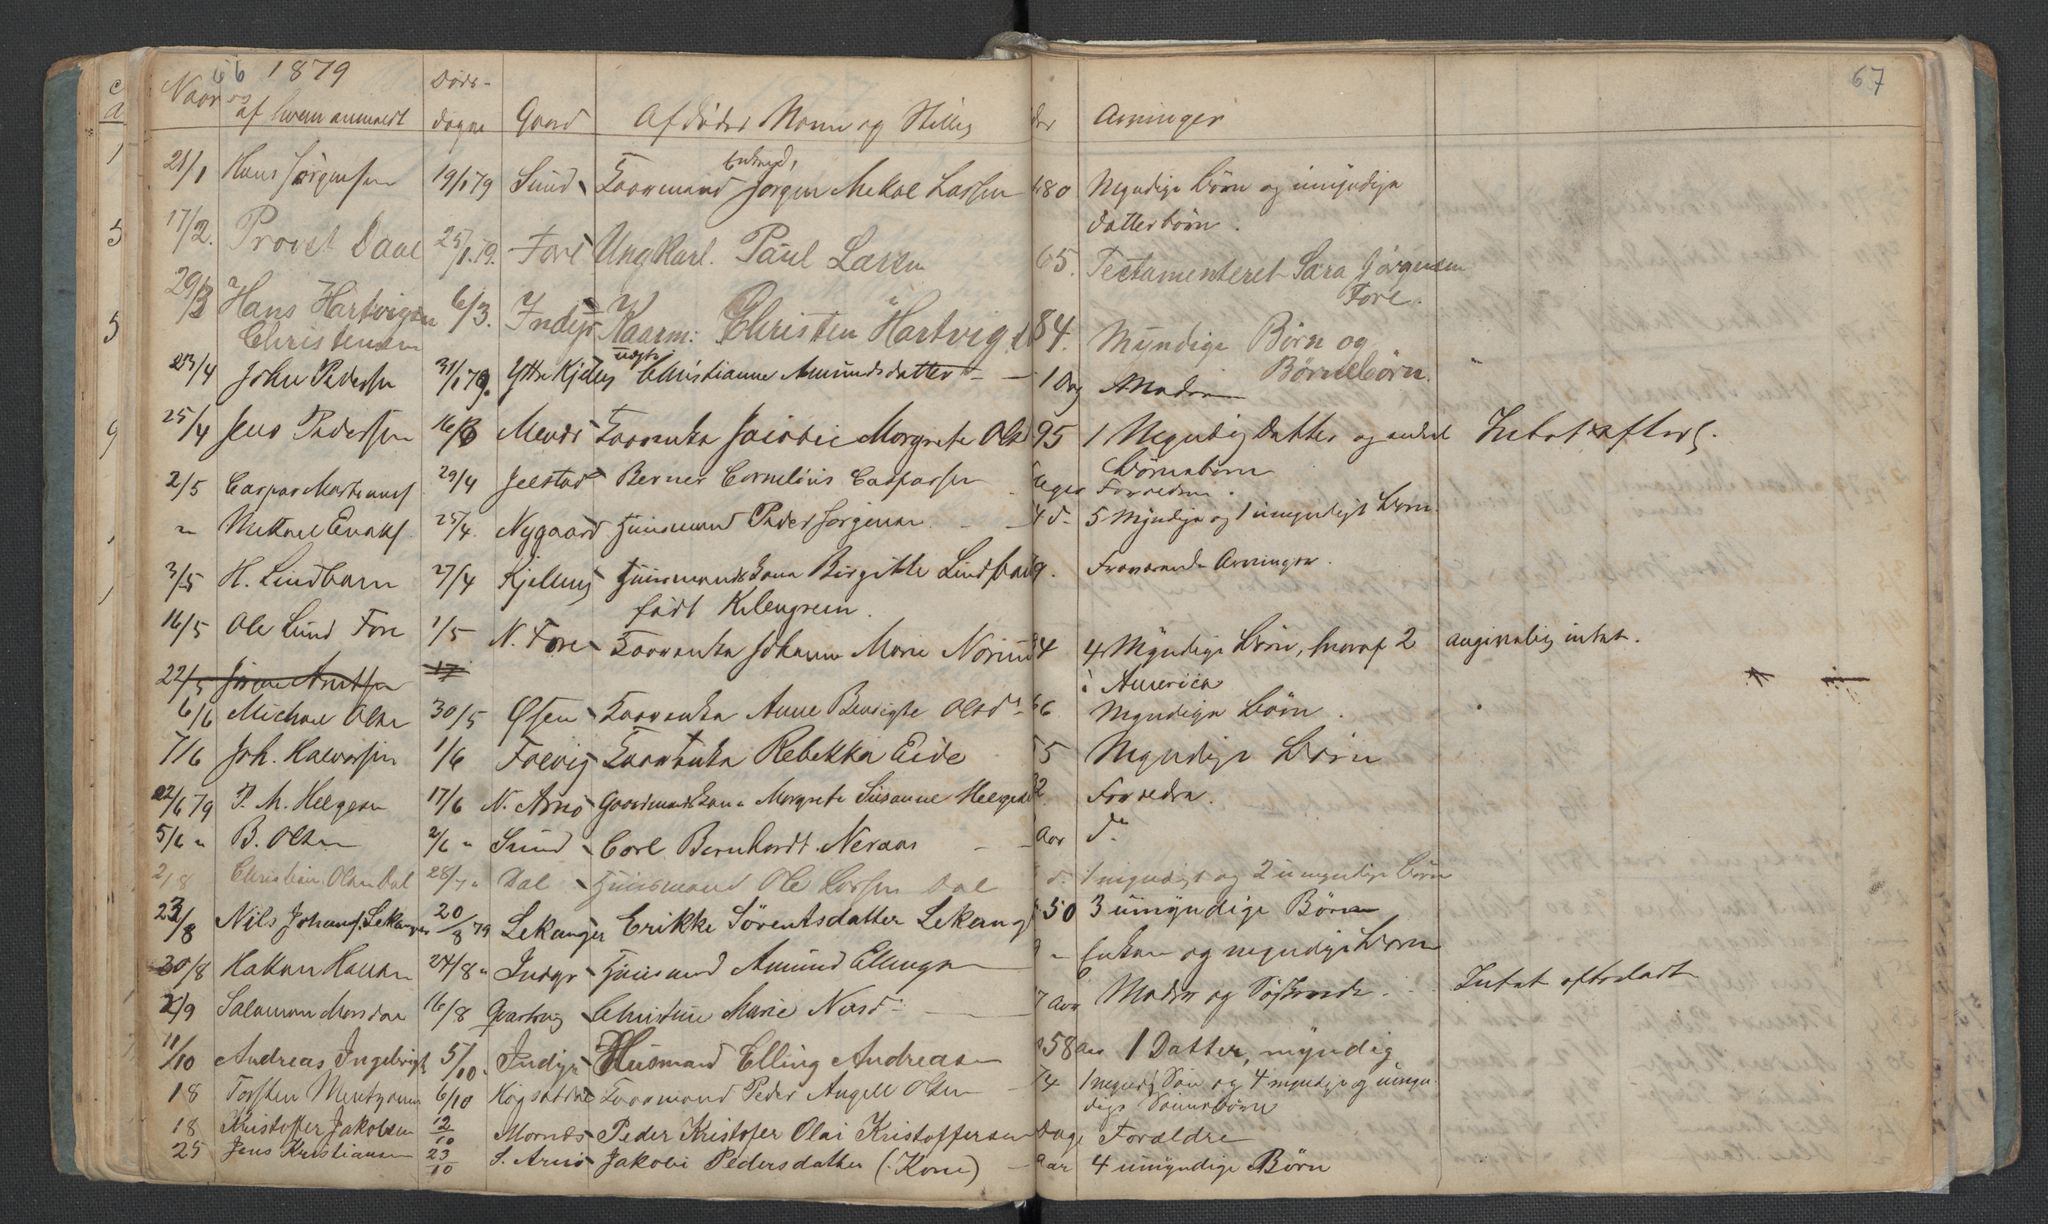 66 1879 67
Naar og af hvem anmeldt Døds- dagen Gaard Afdødes Navn og Stilling Arvinger
21/1 Hans Jørgensen 19/1 79 Sund Kaarmand Enkemd, Jørgen Mekal Lassen 80 Myndige Børn og umyndige
Datterbørn.
17/2. Provst Daae 25/1.79. Fore Ungkarl. Paul Larsen 65. Testamenteret Sara Jørgensen
Fore.
29/3 Hans Hartvigsen 6/3. Indyr Kaarm: Christen Hartvigs 84. Myndige Børn og
Christensen Børnebørn.
23/4 John Pedersen 31/1 79. Ytre Kjelling uægte Christianne Amundsdatter 1 Dag Moderen
25/4 Jens Pedersen 16/3 Mevds Kaarenke Jacobie Morgrete Olsd 95 1 Myndig Datter og endel Intet efterl.
Børnebørn
2/5 Caspar Martinus 29/4 Jelstad Berner Cornelius Casparsen Forældre.
" Mikael Enoks. 25/4. Nygaard Huusmand Peder Jørgensen 5 Myndige og 1 umyndigt Barn.
3/5 H. Lindbarn 27/4 Kjelling Huusmandskone Birgitte Lindbarn 9. Fraværende Arvinger.
født Kilengreen.
16/5 Ole Lund Fore 1/5 N. Fore Kaarenke Johanna Marie 4 4 Myndige Børn, hvoraf 2 angivelig intet.
i America
22/5 Arntsen 17
6/6 Michael Olsen 30/5 Øsen Kaarenke Anne Bendigte Olsdr 66 Myndige Børn.
7/6 Joh. Halvorsen 1/6 Forvig Kaarenke Rebekka Eide 5 Myndige Børn
22/6 79 P. M. Helgesen 17/6 N. Arnø Gaardmandskone Morgrete Susanne Helgesen 2. Forældre.
5/6 " B. Olsen 2/6 " Sund Carl Bernhardt Neraas Aar do
2/8 Christian Olsen Dal 28/7 " Dal Huusmand Ole Larsen Dal 1 myndigt og 2 umyndige Børn
23/8 Nils Johans. Lekanger 20/8 79 Lekanger Erikke Sørentsdatter Lekang 50 3 umyndige Børn
30/8 Hakan Hansen 27/8 " Indyr Huusmand Amund Ellingsen Enken og myndige Børn
2/9 Salamon Morsdal 16/8 Christine Marie Nilsd 7 Aar Moder og Søskende. Intet efterladt
11/10 Andreas Ingebrigts 5/10. Indyr Husmand Elling Andreasen 58 Aar 1 Datter, myndig
18 Torsten Mentzonni 6/10 Kaarmand Peder Angell Olsen 74 1 myndig Søn og 4 myndige og umyn-
dige Sønnebørn
18 Kristoffer Jakobsen 12/10 Mornes Peder Kristofer Olai Kristoffersen Dage Forældre
25 Jens Kristiansen 23/10 S. Arnø Jakobi Pedersdatter (Kone) Aar 4 umyndige Børn